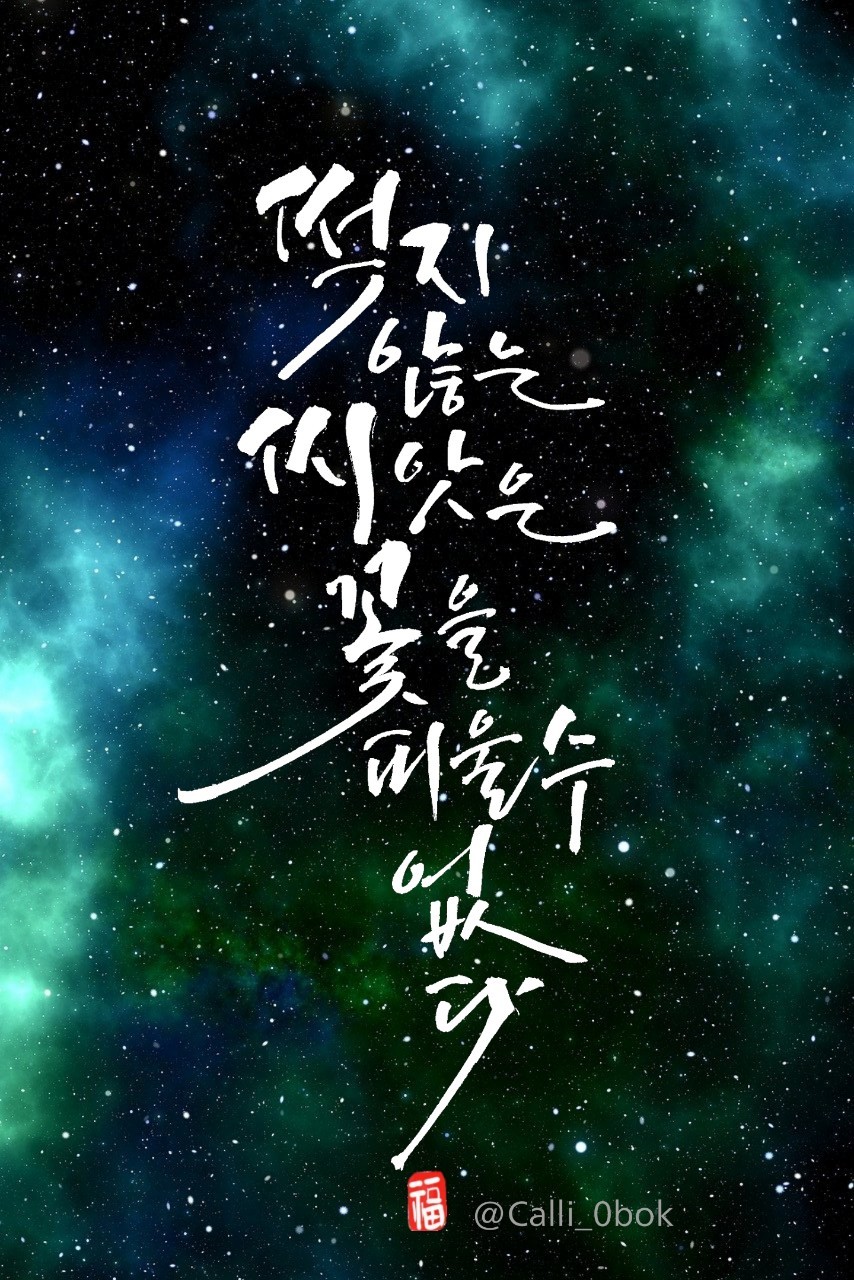 썩지
않는
씨앗은
꽃을
피울수
없다
福 @Calli_0bok